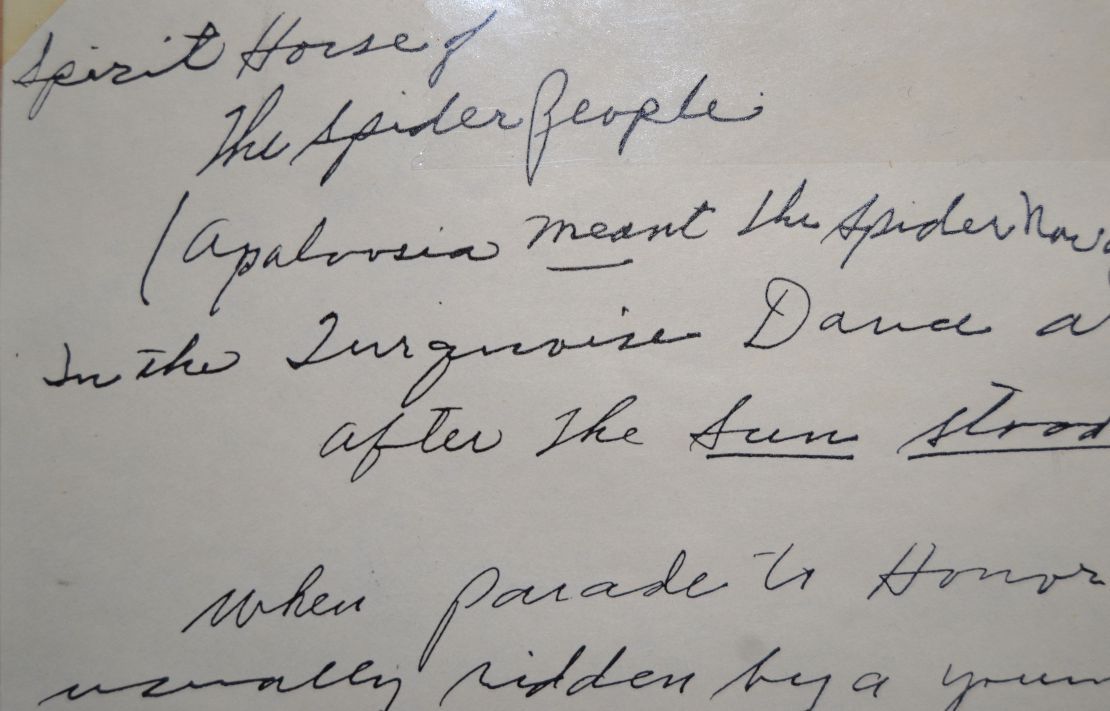 Spirit Horse of
The Spider People
(Apaloosia meant the Spider
In the Turquoise Dance a
after the Sun stood
When parade to Honor
usually ridden by a youn